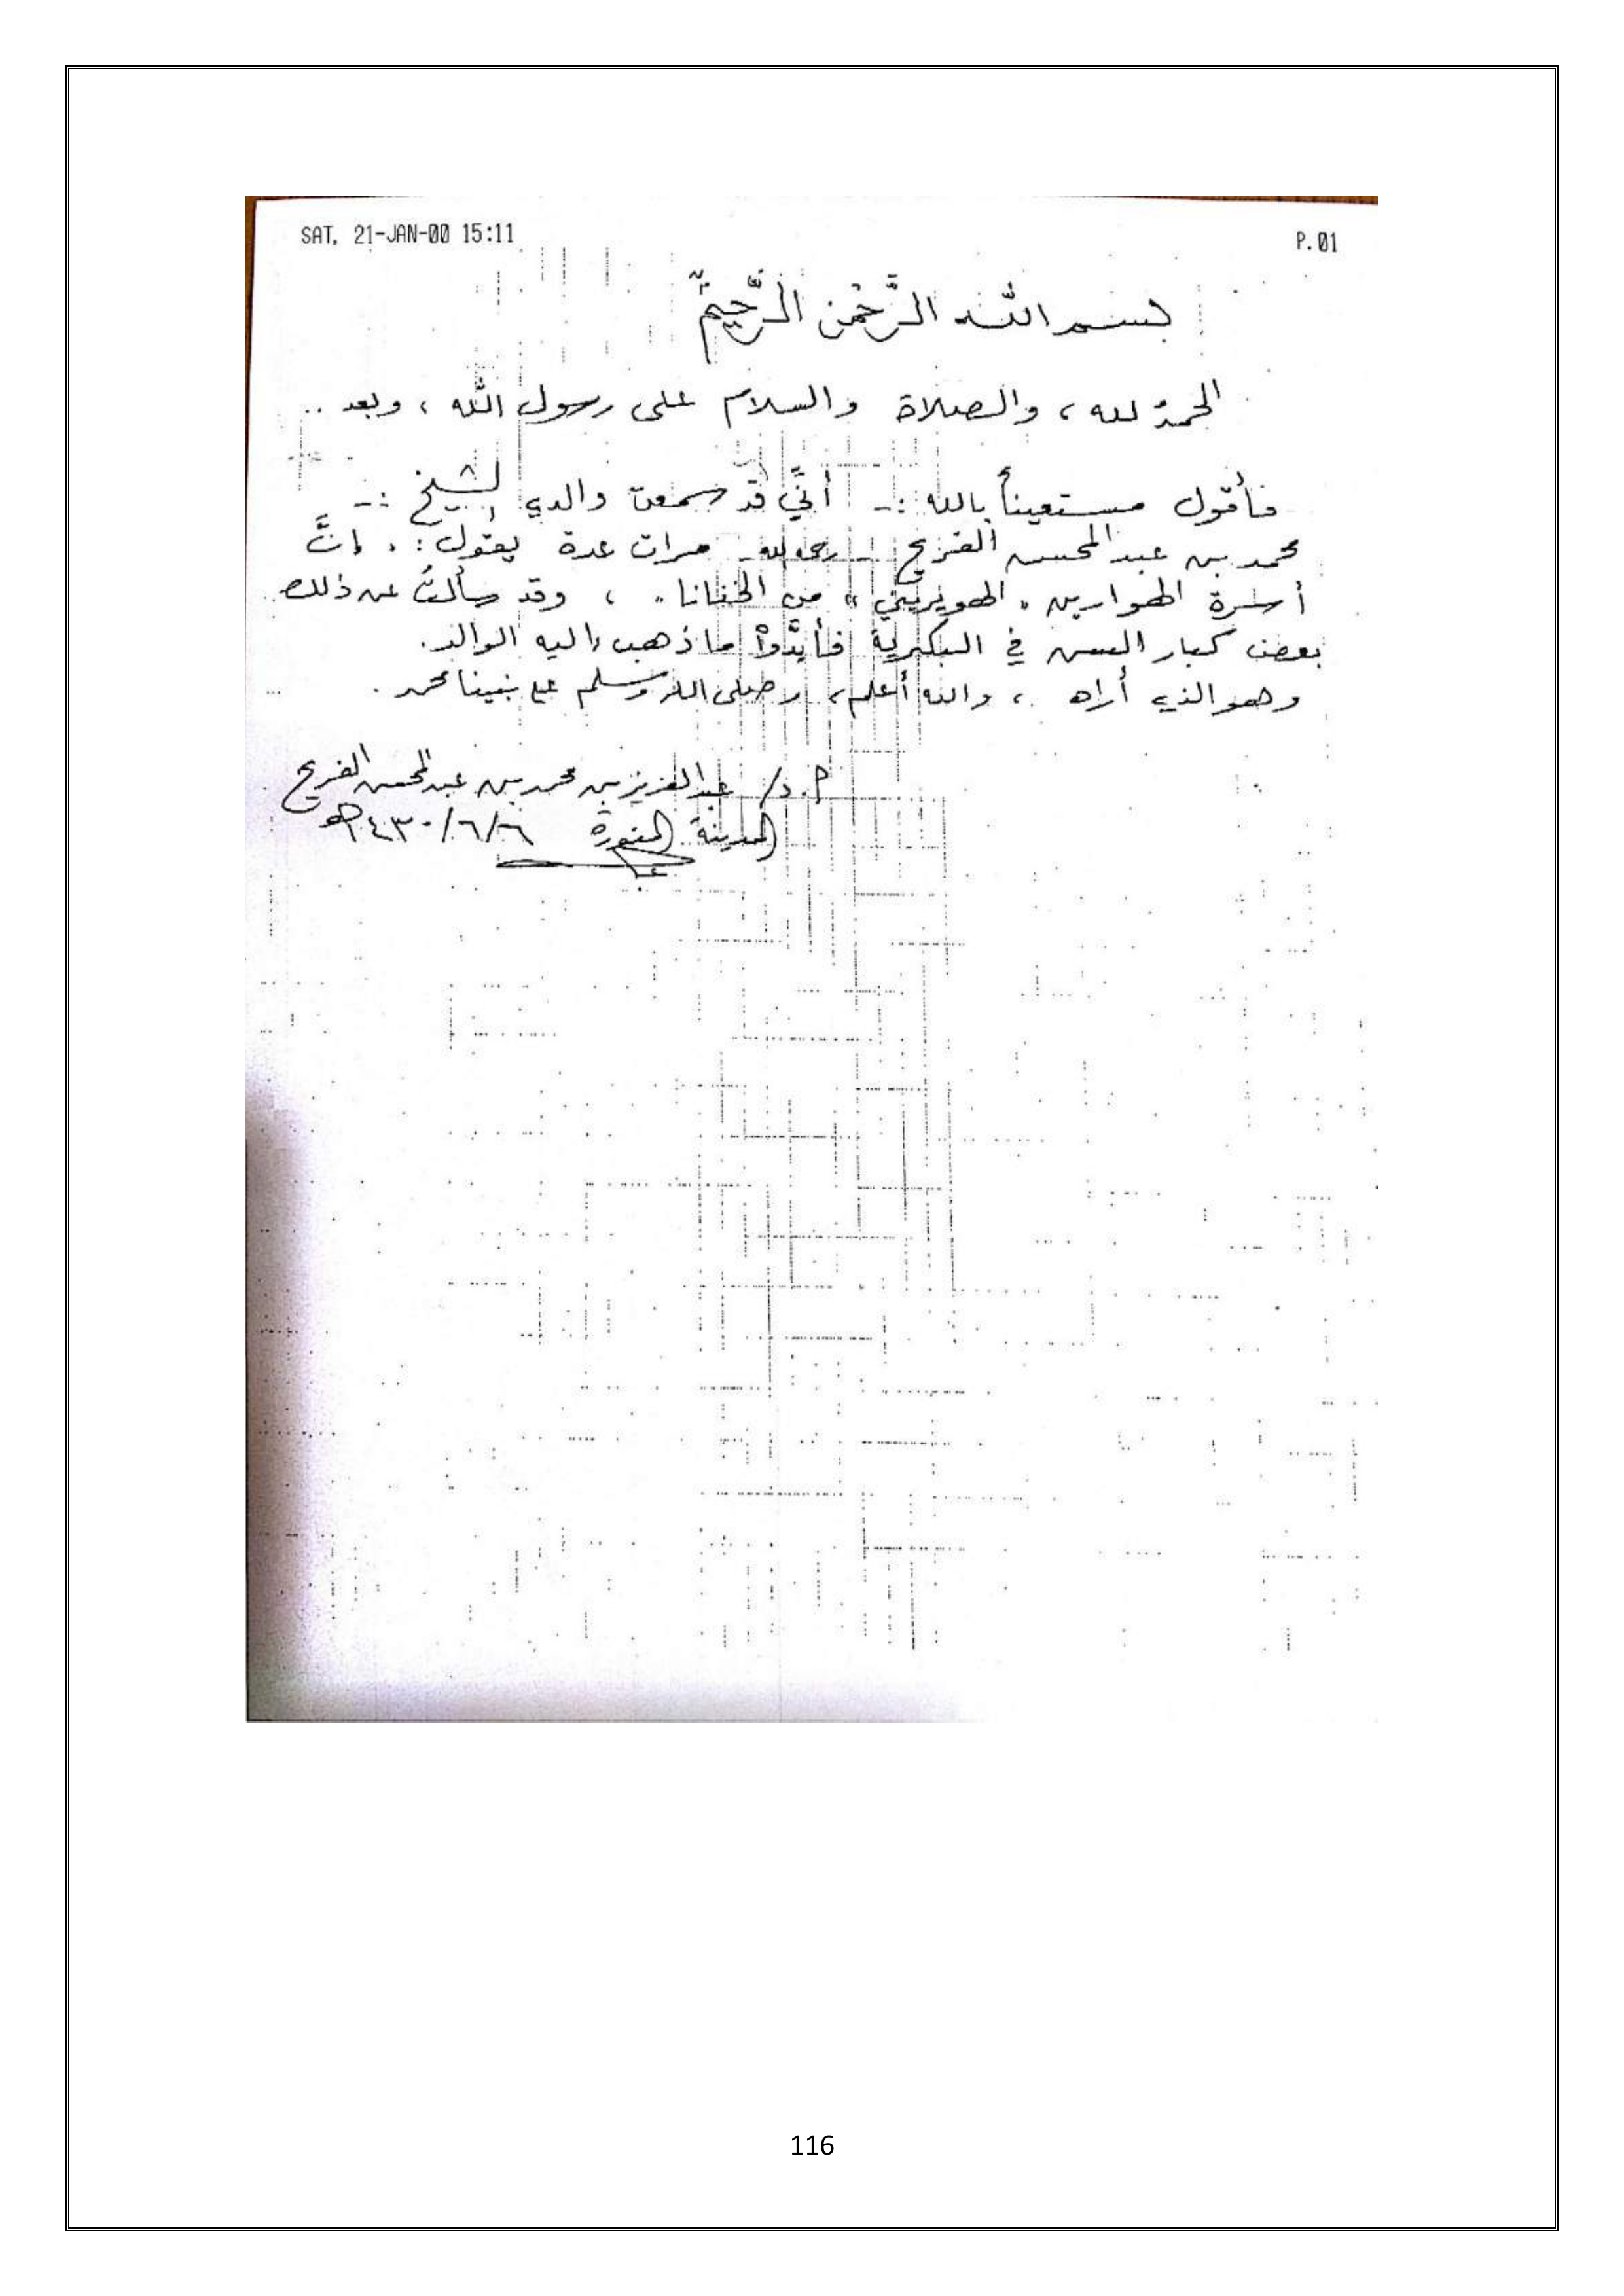 SAT, 21-JAN-00 15:11 P.01
بسم الله الرَّحْمن الرَّحِيمْ
الحمدُ لله ، والصلاة والسلام على رسول الله ، وبعد ..
فأقول مستعيناً بالله :- أنِّي قد سمعت والدي الشيخ :-
محمد بن عبد المحسن الفريح - رحمه الله - مرات عدة يقول : " إنَّ
أسرة الهوارين " الهويريني " من الخفانا " ، وقد سألتُ عن ذلك
بعض كبار السن في البكيرية فأيَّدوْا ما ذهب إليه الوالد .
وهو الذي أراه ، والله أعلم ، وصلى الله وسلم على نبينا محمد .
أ.د/ عبد العزيز بن محمد بن عبد المحسن الفريح
المدينة المنورة ٦/٦/١٤٣٠هـ
116